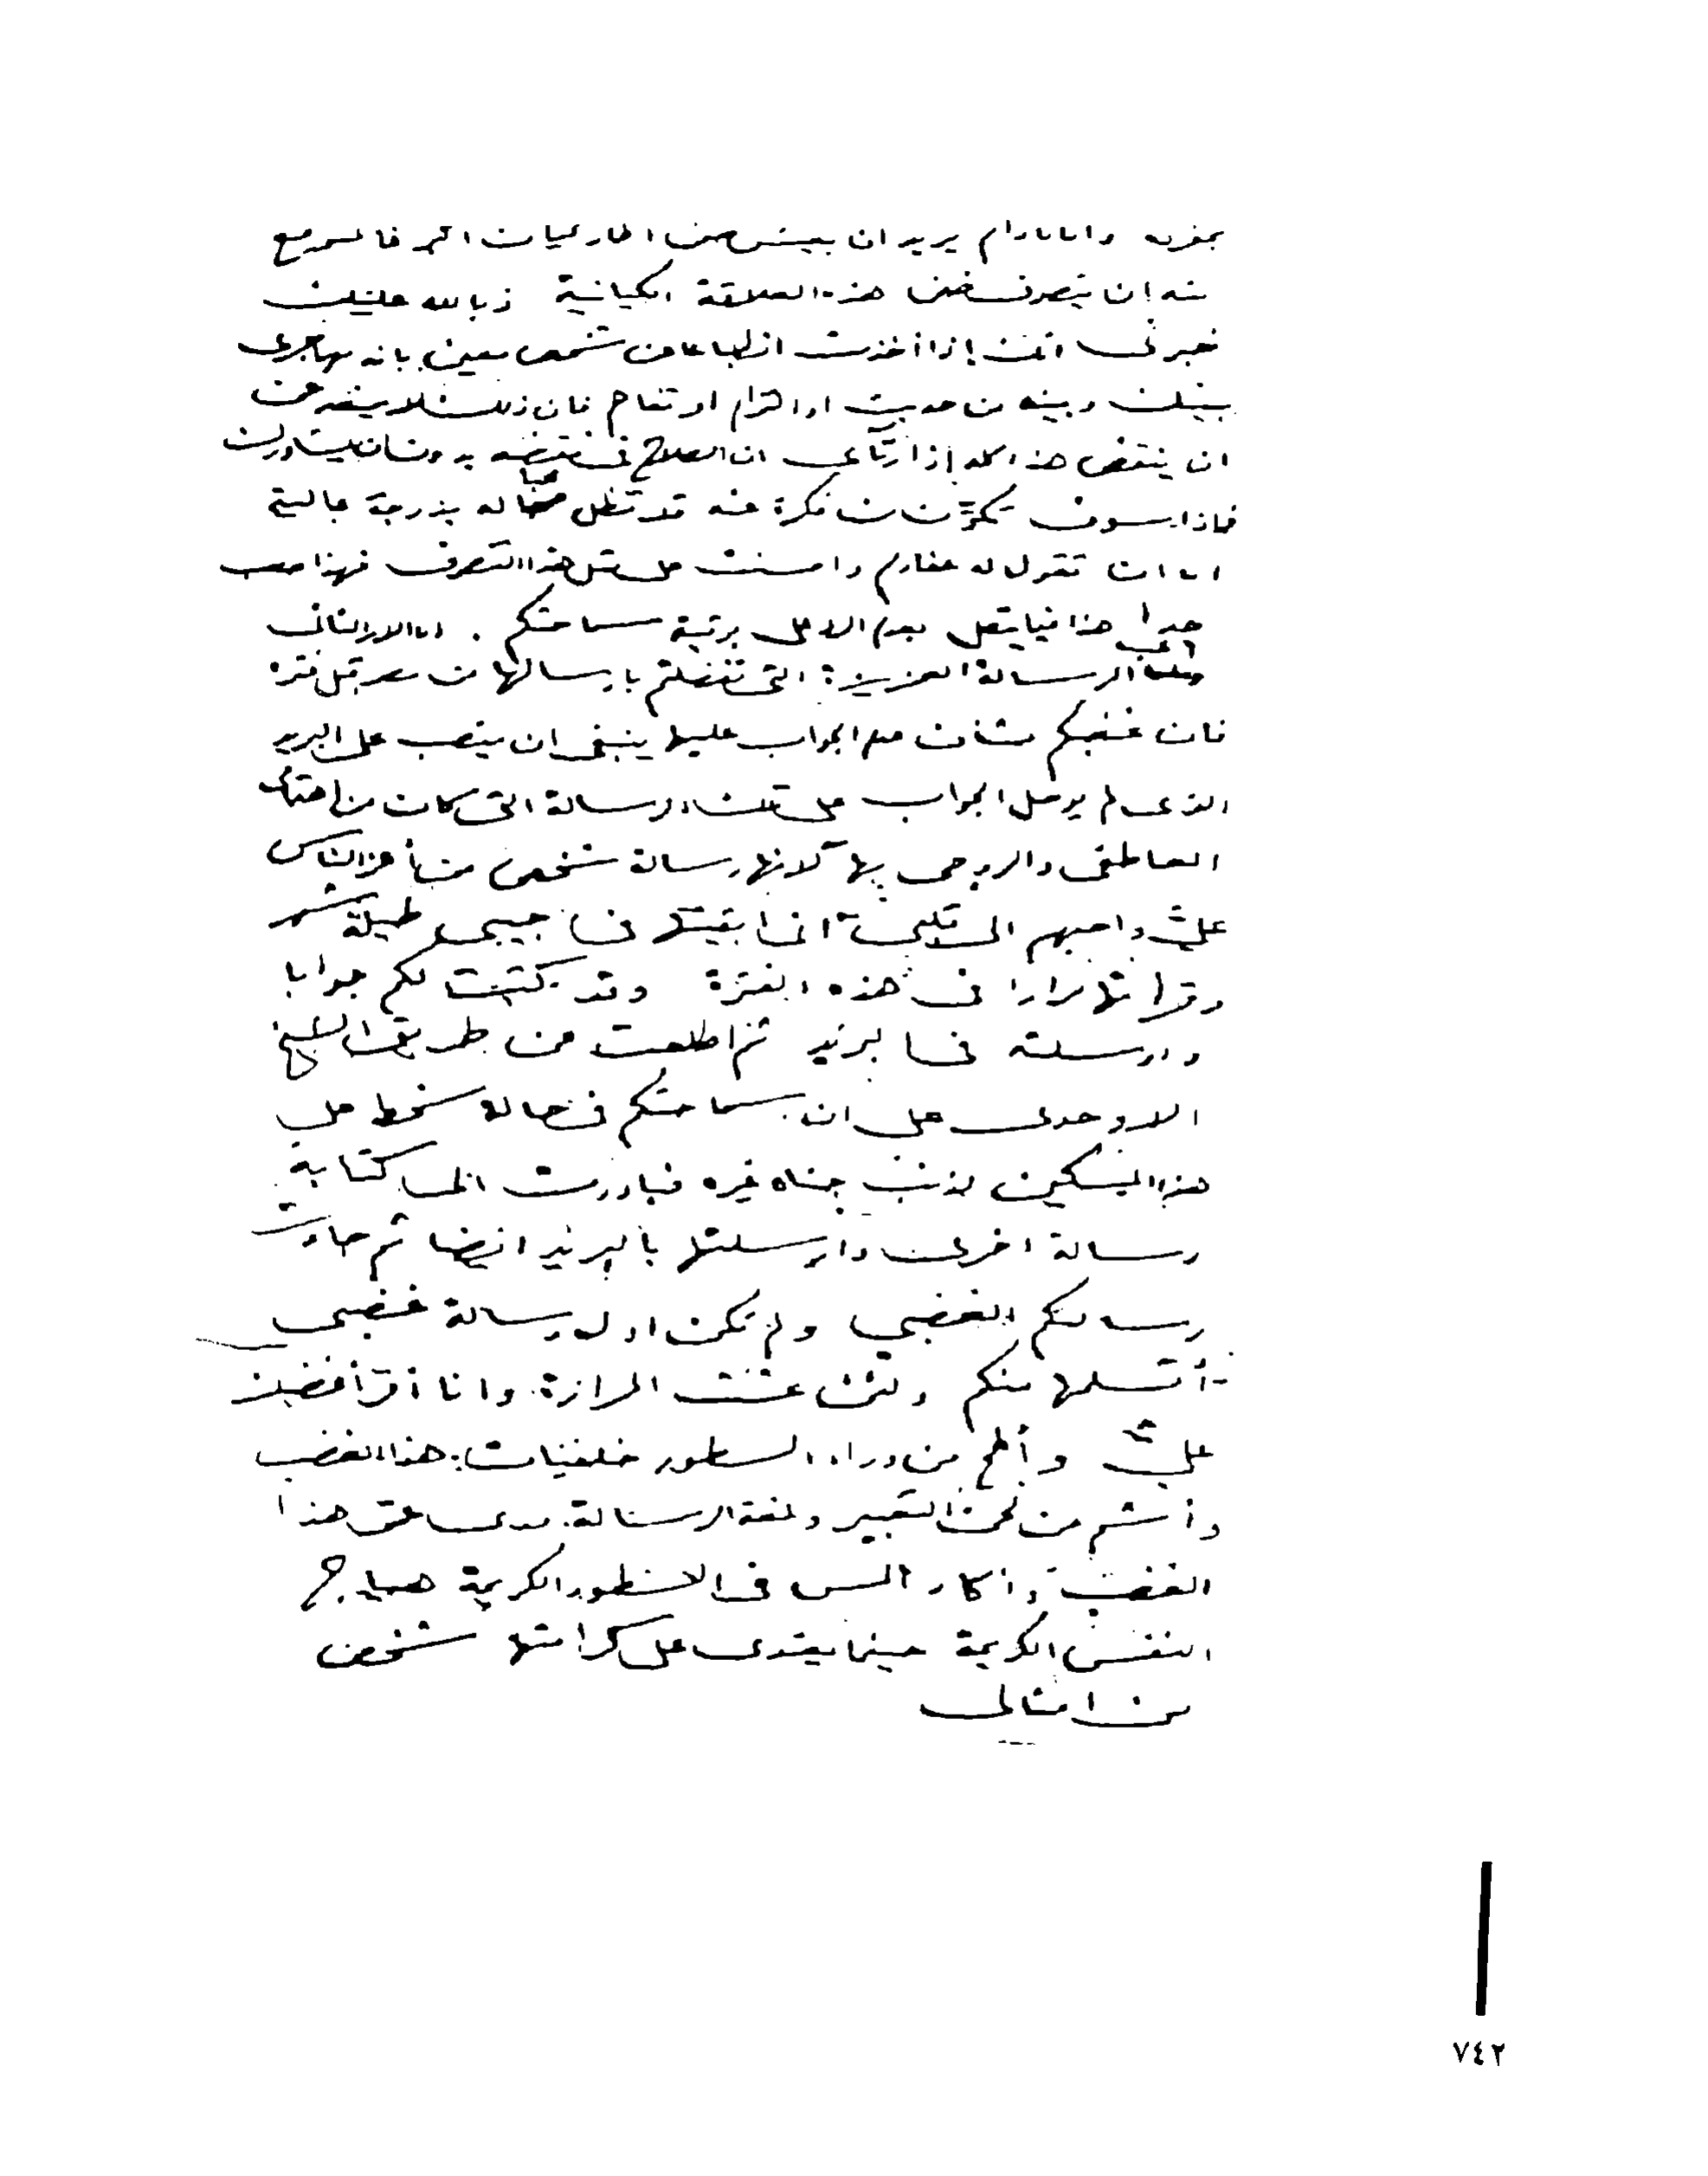 بمفرده واما مادام يريد ان يعيش ضمن اطار كيانات اكبر فالمتوقع
منه ان يتصرف ضمن هذه العلاقة الكيانية وبالله عليك
خبرني انت إذا أخذت انطباعا عن شخص معين بانه مهما جرى
بينك وبينه من حديث او التزام او تفاهم فان ذلك لا يمنعه عن
ان ينقض هذا كله إذا ارتأى ان الصلاح في نقضه بدون ان يشاورك
فماذا سوف تكوّن من فكرة عنه قد تظل محبا له بدرجة عالية
اما ان تقول له عفارم واحسنت على مثل هذا التصرف فهذا صعب
جدا هذا فيما يتصل بعدم الاعلى برقية سماحتكم . اما الامر الثاني
الرسالة العزيزة التي تفضلتم بارسالها من قبل فترة
فان غضبكم بشأن عدم الجواب عليها ينبغي ان ينصب على البريد
الذي لم يوصل الجواب على تلك الرسالة التي كان من اهتمامي
العاطفي والروحي بها لانها رسالة شخص من أعز الناس
عليّ واحبهم الى قلبي اني ابقيتها في جيبي طيلة شهر
وقرأتها مرارا في هذه الفترة وقد كتبت لكم جوابا
وارسلته في البريد ثم اطلعت من طريق الشيخ
الاوحدي على ان سماحتكم في حالة سخط على
هذا المسكين لذنب جناه غيره فبادرت الى كتابة
رسالة اخرى وارسلتها بالبريد ايضا ثم جاءت
رسالتكم الغضبى ولم تكن اول رسالة غضبى
أتسلمها منكم ولكن عشت المرارة وانا أقرأ غضبك
عليّ وألمح من وراء السطور خلفيات هذا الغضب
وأشم من لحن التعبير ولغة الرسالة مدى عمق هذا
الغضب واكاد المس في الاسطور الكريمة هياج
النفس الكريمة حينما يعتدى على كرامتها شخص
من امثالي
٧٤٢